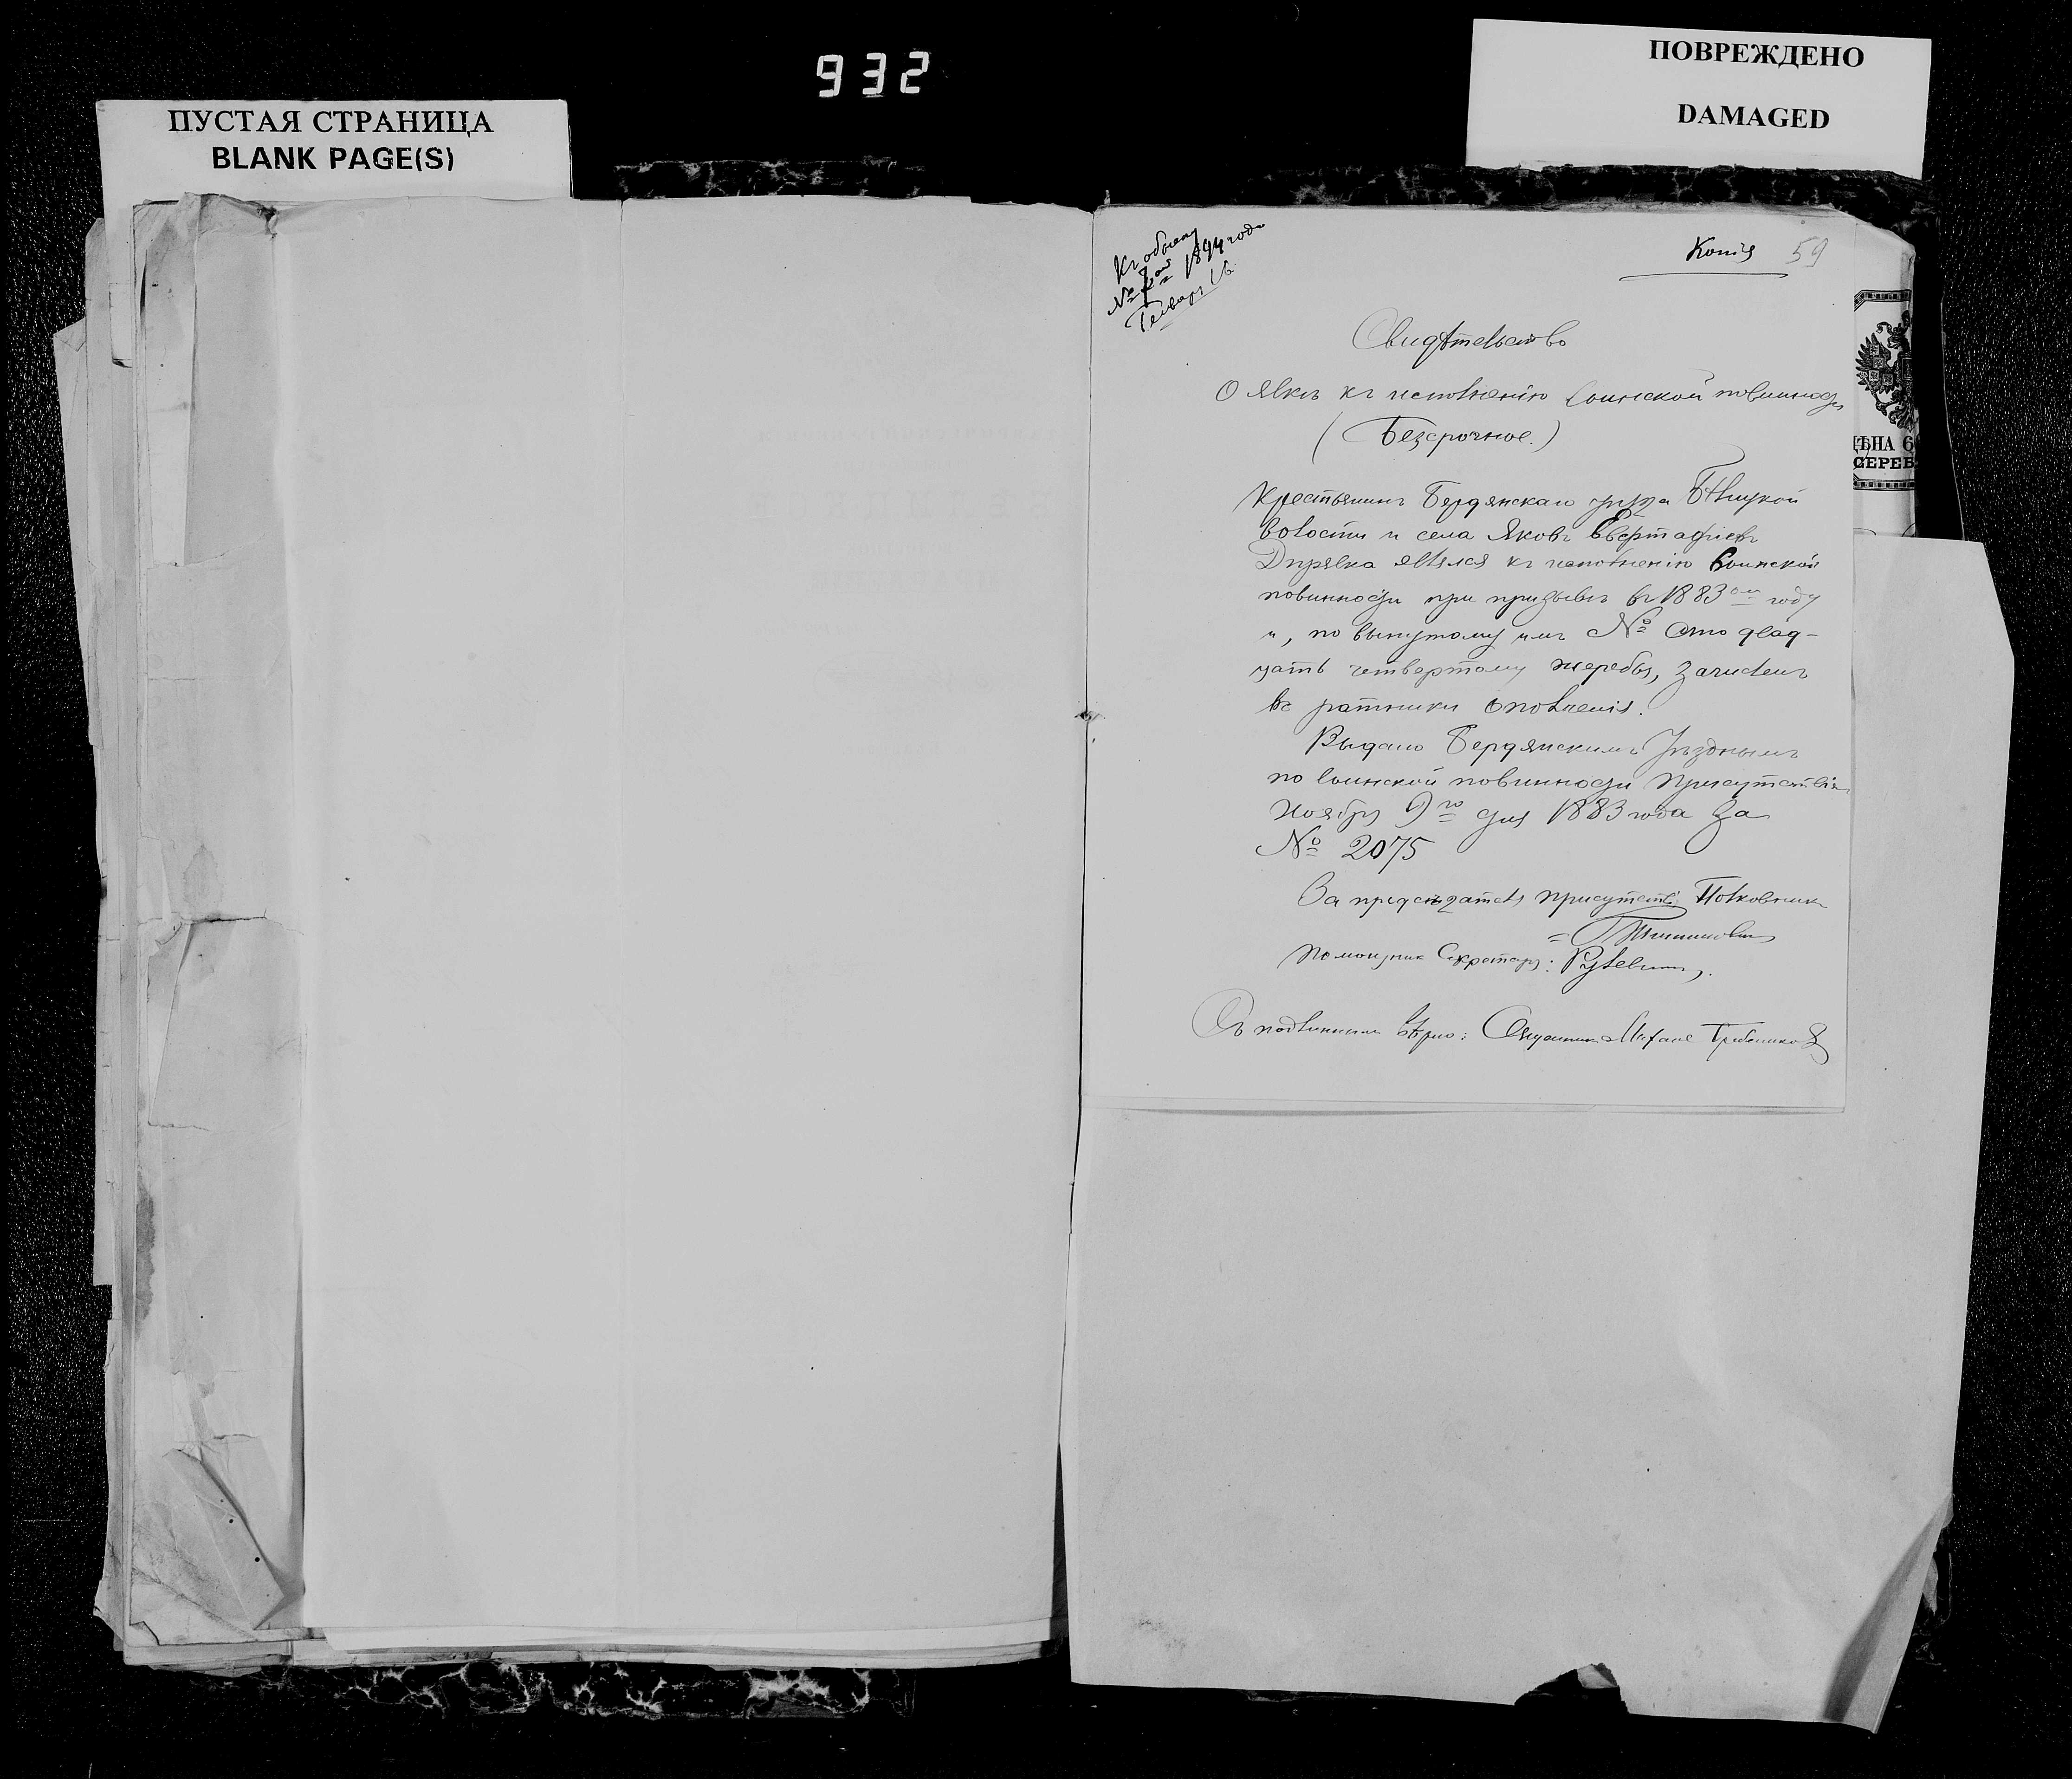 932
ПОВРЕЖДЕНО
DAMAGED
ПУСТАЯ СТРАНИЦА
BLANK PAGE(S)
Къ обыску
№ 1894 года
Генваря 16
Копія 59
Свидѣтельство
О явкѣ къ исполненію воинской повинности
(Безсрочное.)
ЦѢНА 6
СЕРЕБ
Крестьянинъ Бердянскаго уѣзда Бѣлицкой
волости и села Яковъ Евстафіевъ
явился къ исполненію воинской
повинности при призывѣ въ 1883 ом году
и, по вынутому имъ № сто двад-
цать четвертому жеребья, зачисленъ
въ ратники ополченія.
Выдано Бердянскимъ Уѣзднымъ
по воинской повинности Присутствіемъ
Ноября 9го дня 1883 года за
№ 2075
За предсѣдателя присутствія Полковникъ
Помощникъ Секретаря:
Съ подлиннымъ вѣрно: Священникъ Михаилъ